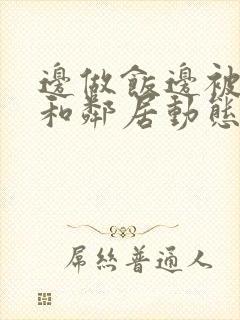 邊做飯邊被
和鄰居動態
屌絲普通人